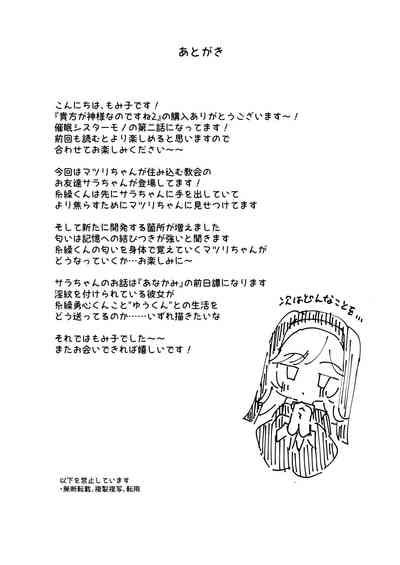 あとがき
こんにちは、もみ子です！
『貴方が神様なのですね2』の購入ありがとうございます〜！
催眠シスターモノの第二話になってます！
前回も読むとより楽しめると思いますので
合わせてお楽しみください〜〜
今回はマツリちゃんが住み込む教会の
お友達サラちゃんが登場してます！
糸繰くんは先にサラちゃんに手を出していて
より焦らすためにマツリちゃんに見せつけてます
そして新たに開発する箇所が増えました
匂いは記憶への結びつきが強いと聞きます
糸繰くんの匂いを身体で覚えていくマツリちゃんが
どうなっていくか…お楽しみに〜
サラちゃんのお話は『あなかみ』の前日譚になります
淫紋を付けられている彼女が
糸繰勇心くんこと"ゆうくん"との生活を
どう送ってるのか……いずれ描きたいな
それではもみ子でした〜〜
またお会いできれば嬉しいです！
次はどんなことを…
以下を禁止しています
・無断転載、複製複写、転用